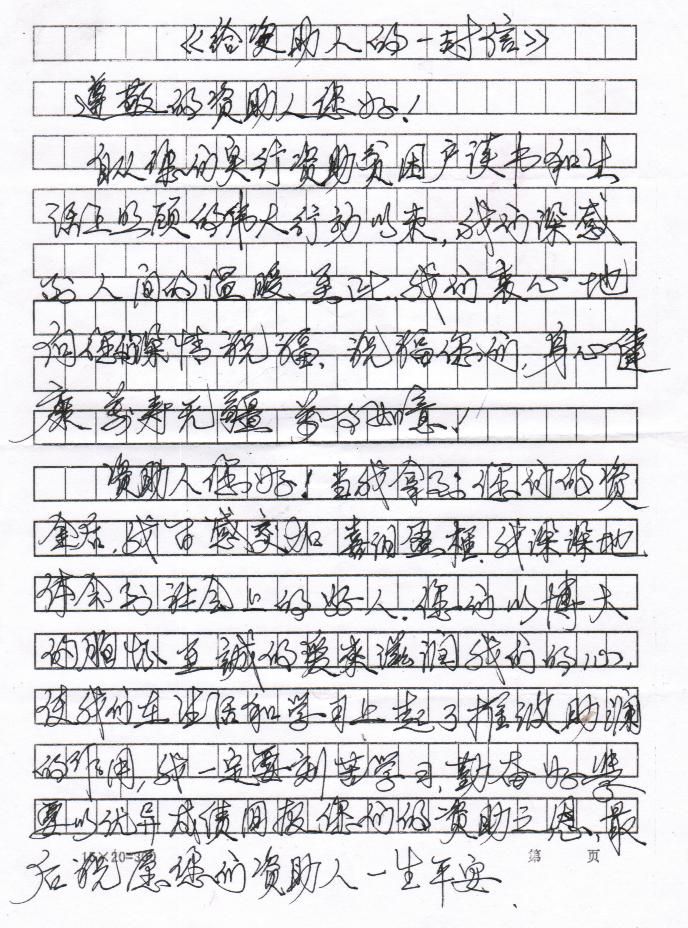 《给资助人的一封信》
尊敬的资助人您好！
自从您们实行资助贫困户读书和生
活上照顾的伟大行动以来，我们深感
到人间的温暖至此，我们衷心地
向您们深情祝福、祝福您们，身心健
康万寿无疆万事如意！
资助人您好！当我拿到您们的资
金后，我百感交加 热泪盈框，我深深地
体会到社会上的好人．您们以博大
的胸怀 至誠的爱来滋润我们的心，
使我们在生活和学习上起了推波助澜
的作用，我一定要刻苦学习，勤奋好学
要以优异成绩回报您们的资助之恩、最
后祝愿您们资助人一生平安．
15×20=300
第 页